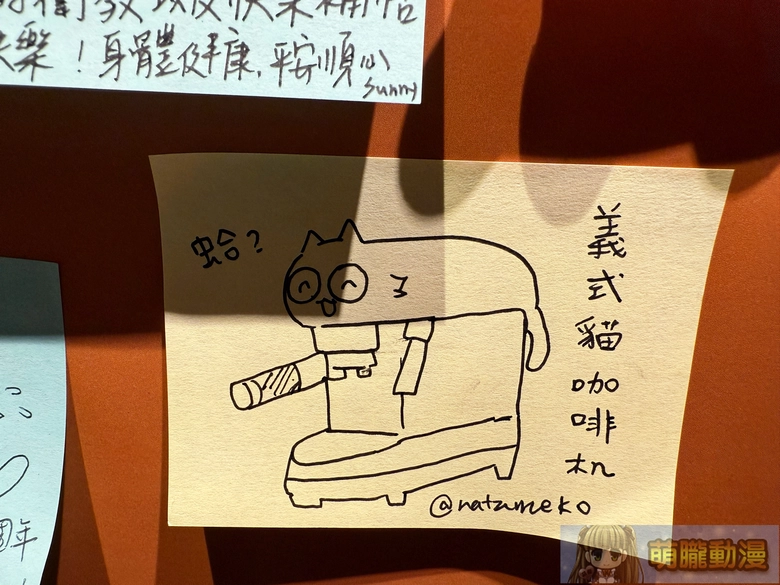 快樂！身體健康，平安順心
Sunny
蛤？
義式貓咖啡机
@natumeko
週年
萌朧動漫